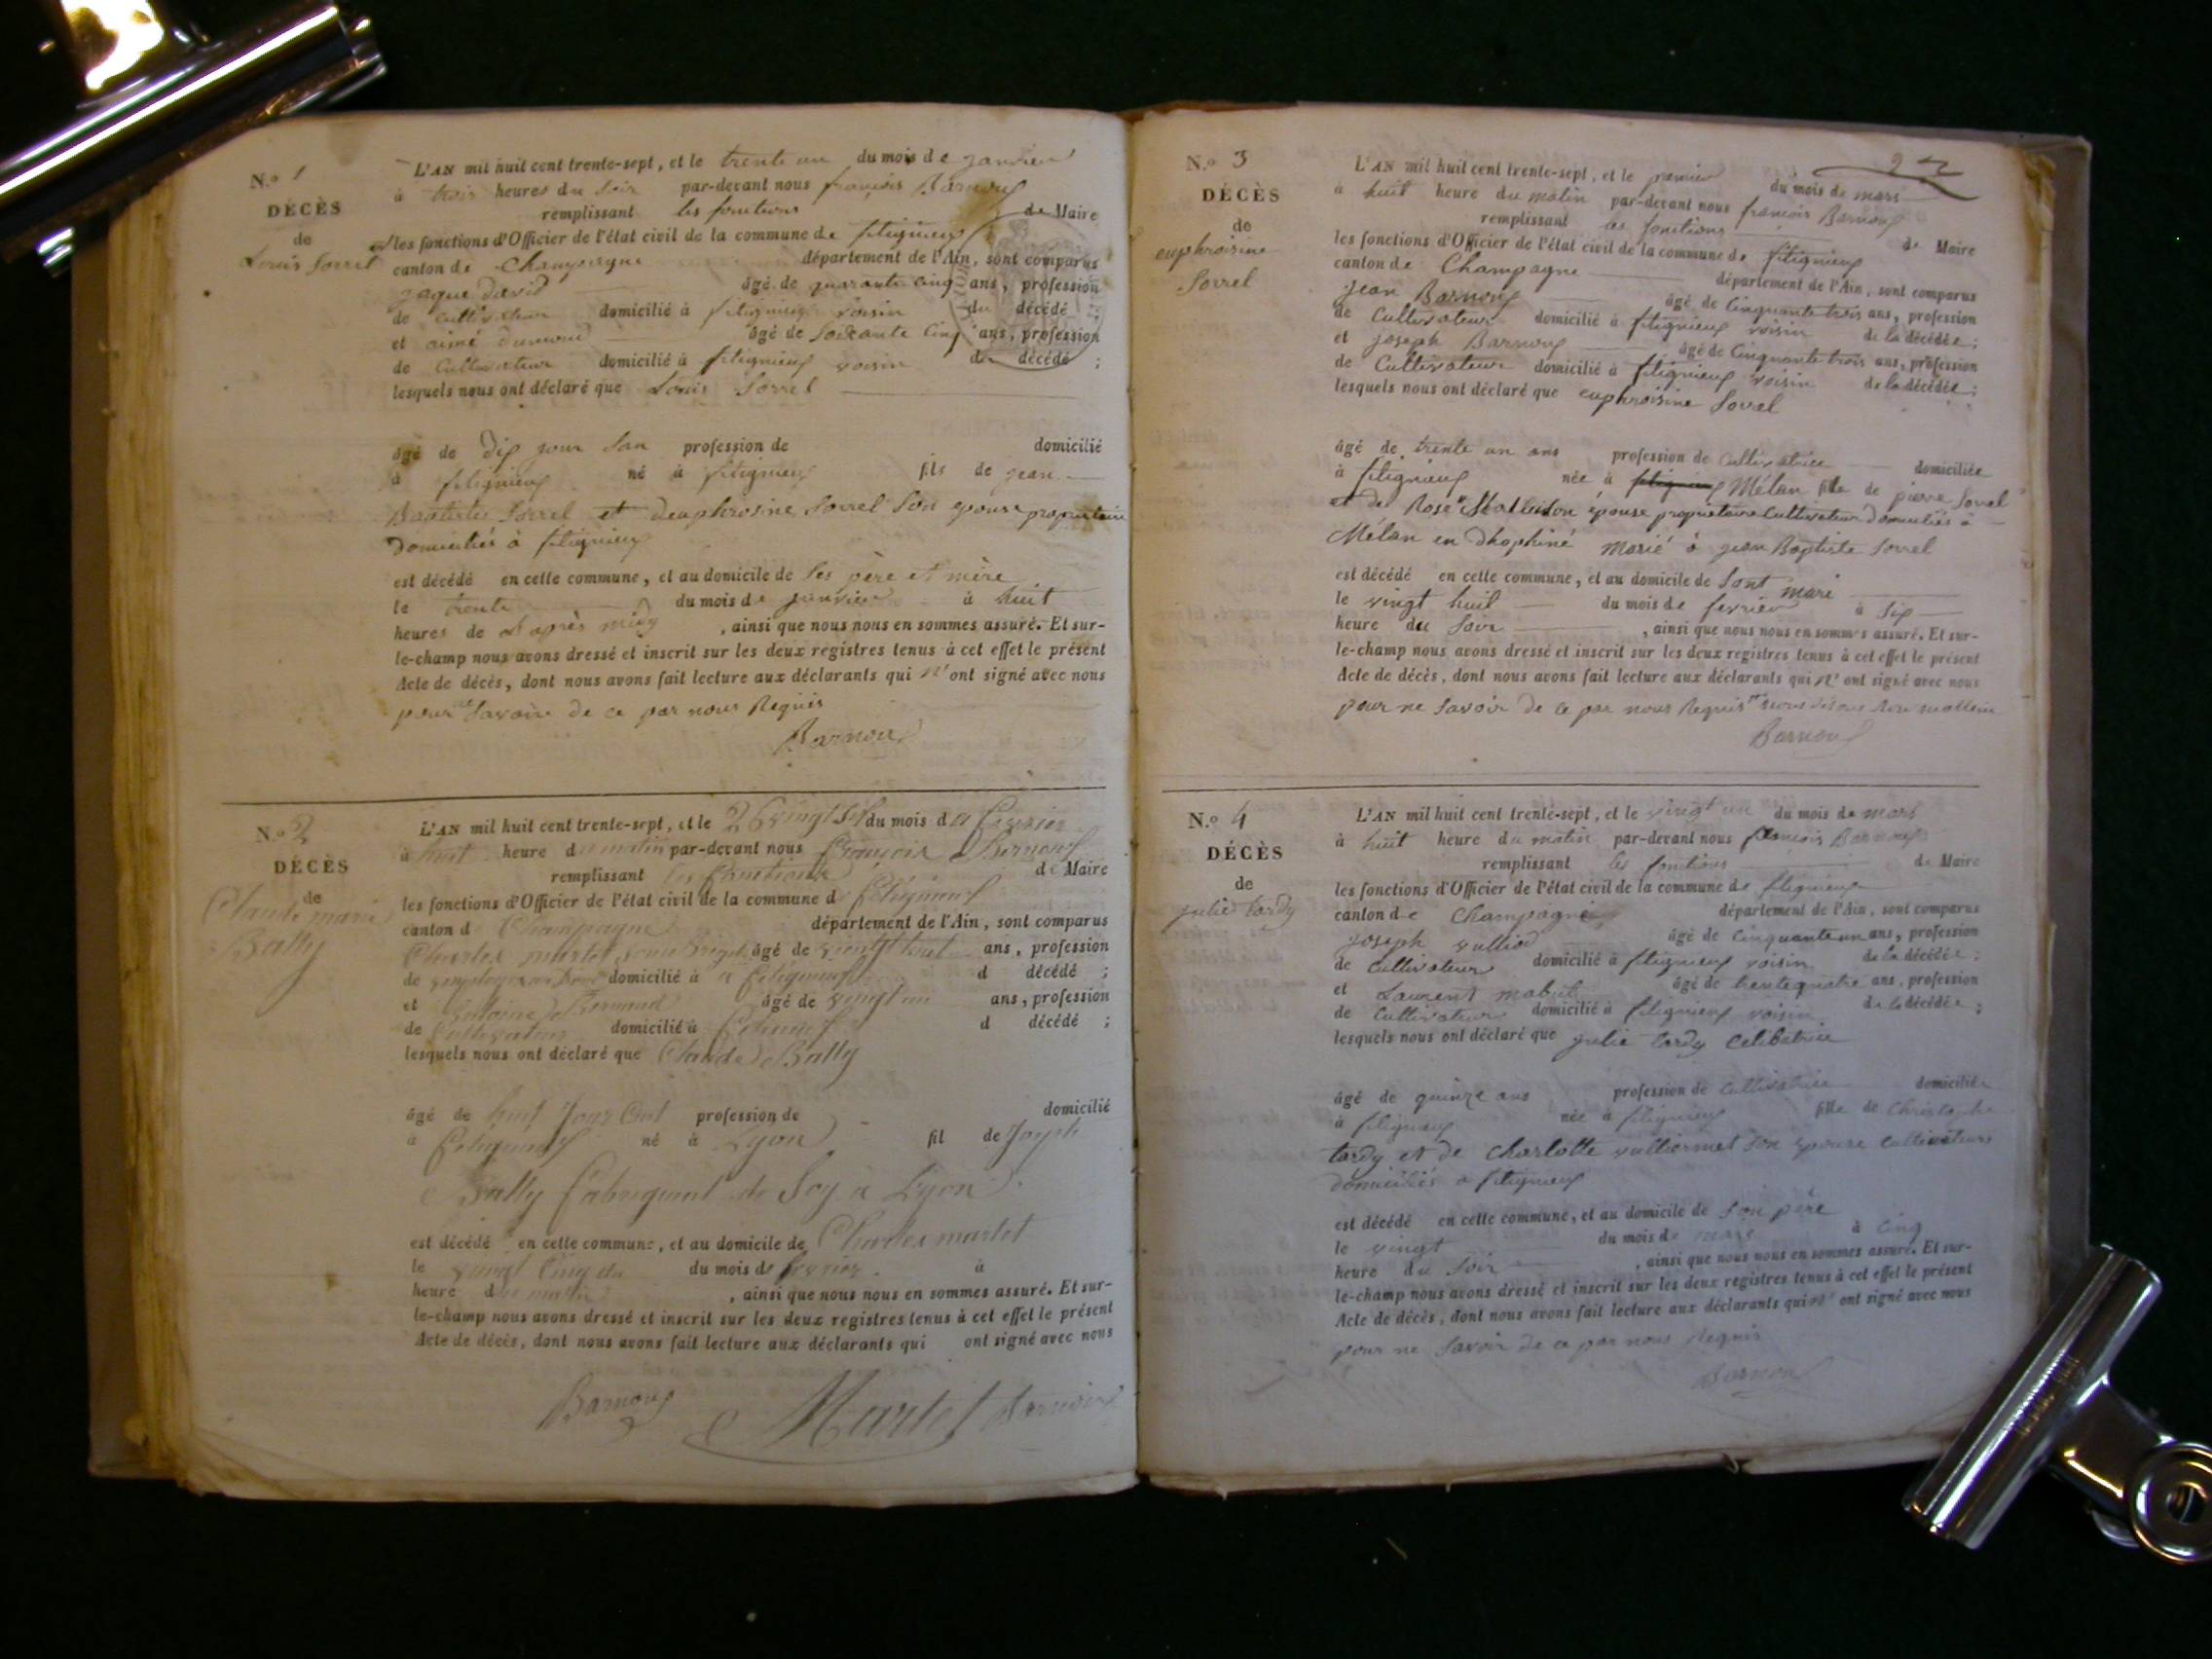 N.o 1
DÉCÈS
de
Louis Sorrel
L'AN mil huit cent trente-sept, et le trente un du mois de janvier
à trois heures du soir par-devant nous françois Barnoux
remplissant les fonctions de Maire
les fonctions d'Officier de l'état civil de la commune de fitignieux
canton de Champagne département de l'Ain, sont comparus
jaque david âgé de quarante cinq ans, profession
de cultivateur domicilié à fitignieux voisin du décédé ;
et aimé dumond âgé de soixante cinq ans, profession
de Cultivateur domicilié à fitignieux voisin du décédé ;
lesquels nous ont déclaré que Louis Sorrel
âgé de dix jour San profession de domicilié
à fitignieux né à fitignieux fils de jean
Baptiste Sorrel et deuphrosine Sorrel Son epouse propriétaire
Domiciliés à fitignieux
est décédé en cette commune, et au domicile de Ses père et mère
le trente du mois de janvier à huit
heures de L'après midy , ainsi que nous nous en sommes assuré. Et sur-
le-champ nous avons dressé et inscrit sur les deux registres tenus à cet effet le présent
Acte de décès, dont nous avons fait lecture aux déclarants qui n'ont signé avec nous
pour ne Savoir de ce par nous Requis
Barnoux
N.o 2
DÉCÈS
de
Claude marie
Bally
L'AN mil huit cent trente-sept, et le 26 vingt six du mois de février
à huit heure du matin par-devant nous François Bernoux
remplissant les fonctions de Maire
les fonctions d'Officier de l'état civil de la commune d fitignieux
canton d Champagne département de l'Ain, sont comparus
Charles martet âgé de vingt huit ans, profession
de domicilié à a fitignieux d décédé ;
et Antoine Bernoud âgé de vingt un ans, profession
de Cultivateur domicilié à fitignieux d décédé ;
lesquels nous ont déclaré que Claude Bally
âgé de huit jour profession de domicilié
à fitignieux né à Lyon fil de Joseph
Bally fabriquant de Soy à Lyon
est décédé en cette commune, et au domicile de Charles martet
le vingt cinq du mois de février à
heure du matin , ainsi que nous nous en sommes assuré. Et sur-
le-champ nous avons dressé et inscrit sur les deux registres tenus à cet effet le présent
Acte de décès, dont nous avons fait lecture aux déclarants qui ont signé avec nous
Barnoux Martet
N.o 3
DÉCÈS
de
euphroisine
Sorrel
L'AN mil huit cent trente-sept, et le premier du mois de mars
à huit heure du matin par-devant nous françois Barnoux
remplissant les fonctions de Maire
les fonctions d'Officier de l'état civil de la commune de fitignieux
canton de Champagne département de l'Ain, sont comparus
jean Barnoux âgé de Cinquante trois ans, profession
de Cultivateur domicilié à fitignieux voisin de la décédée ;
et joseph Barnoux âgé de Cinquante trois ans, profession
de Cultivateur domicilié à fitignieux voisin de la décédée ;
lesquels nous ont déclaré que euphroisine Sorrel
âgé de trente un ans profession de Cultivatrice domiciliée
à fitignieux née à fitignieux Mélan fille de pierre Sorrel
et de Rose épouse propriétaire Cultivateur Domiciliés à
Mélan en dhophiné marié à jean Baptiste Sorrel
est décédé en cette commune, et au domicile de Sont mari
le vingt huit du mois de fevrier à Six
heure du Soir , ainsi que nous nous en sommes assuré. Et sur-
le-champ nous avons dressé et inscrit sur les deux registres tenus à cet effet le présent
Acte de décès, dont nous avons fait lecture aux déclarants qui n'ont signé avec nous
pour ne Savoir de ce par nous Requis
Barnoux
N.o 4
DÉCÈS
de
julie tardy
L'AN mil huit cent trente-sept, et le vingt un du mois de mars
à huit heure du matin par-devant nous françois Barnoux
remplissant les fonctions de Maire
les fonctions d'Officier de l'état civil de la commune de fitignieux
canton de Champagne département de l'Ain, sont comparus
joseph vulliod âgé de Cinquante un ans, profession
de Cultivateur domicilié à fitignieux voisin de la décédée ;
et Laurent âgé de trente quatre ans, profession
de Cultivateur domicilié à fitignieux voisin de la décédée ;
lesquels nous ont déclaré que julie tardy Celibatrice
âgé de quinze ans profession de Cultivatrice domiciliée
à fitignieux née à fitignieux fille de Christophe
tardy et de Charlotte vulliermet Son epouse Cultivateurs
domiciliés à fitignieux
est décédé en cette commune, et au domicile de Son père
le vingt du mois de mars à Cinq
heure du Soir , ainsi que nous nous en sommes assuré. Et sur-
le-champ nous avons dressé et inscrit sur les deux registres tenus à cet effet le présent
Acte de décès, dont nous avons fait lecture aux déclarants qui n'ont signé avec nous
pour ne Savoir de ce par nous Requis
Barnoux